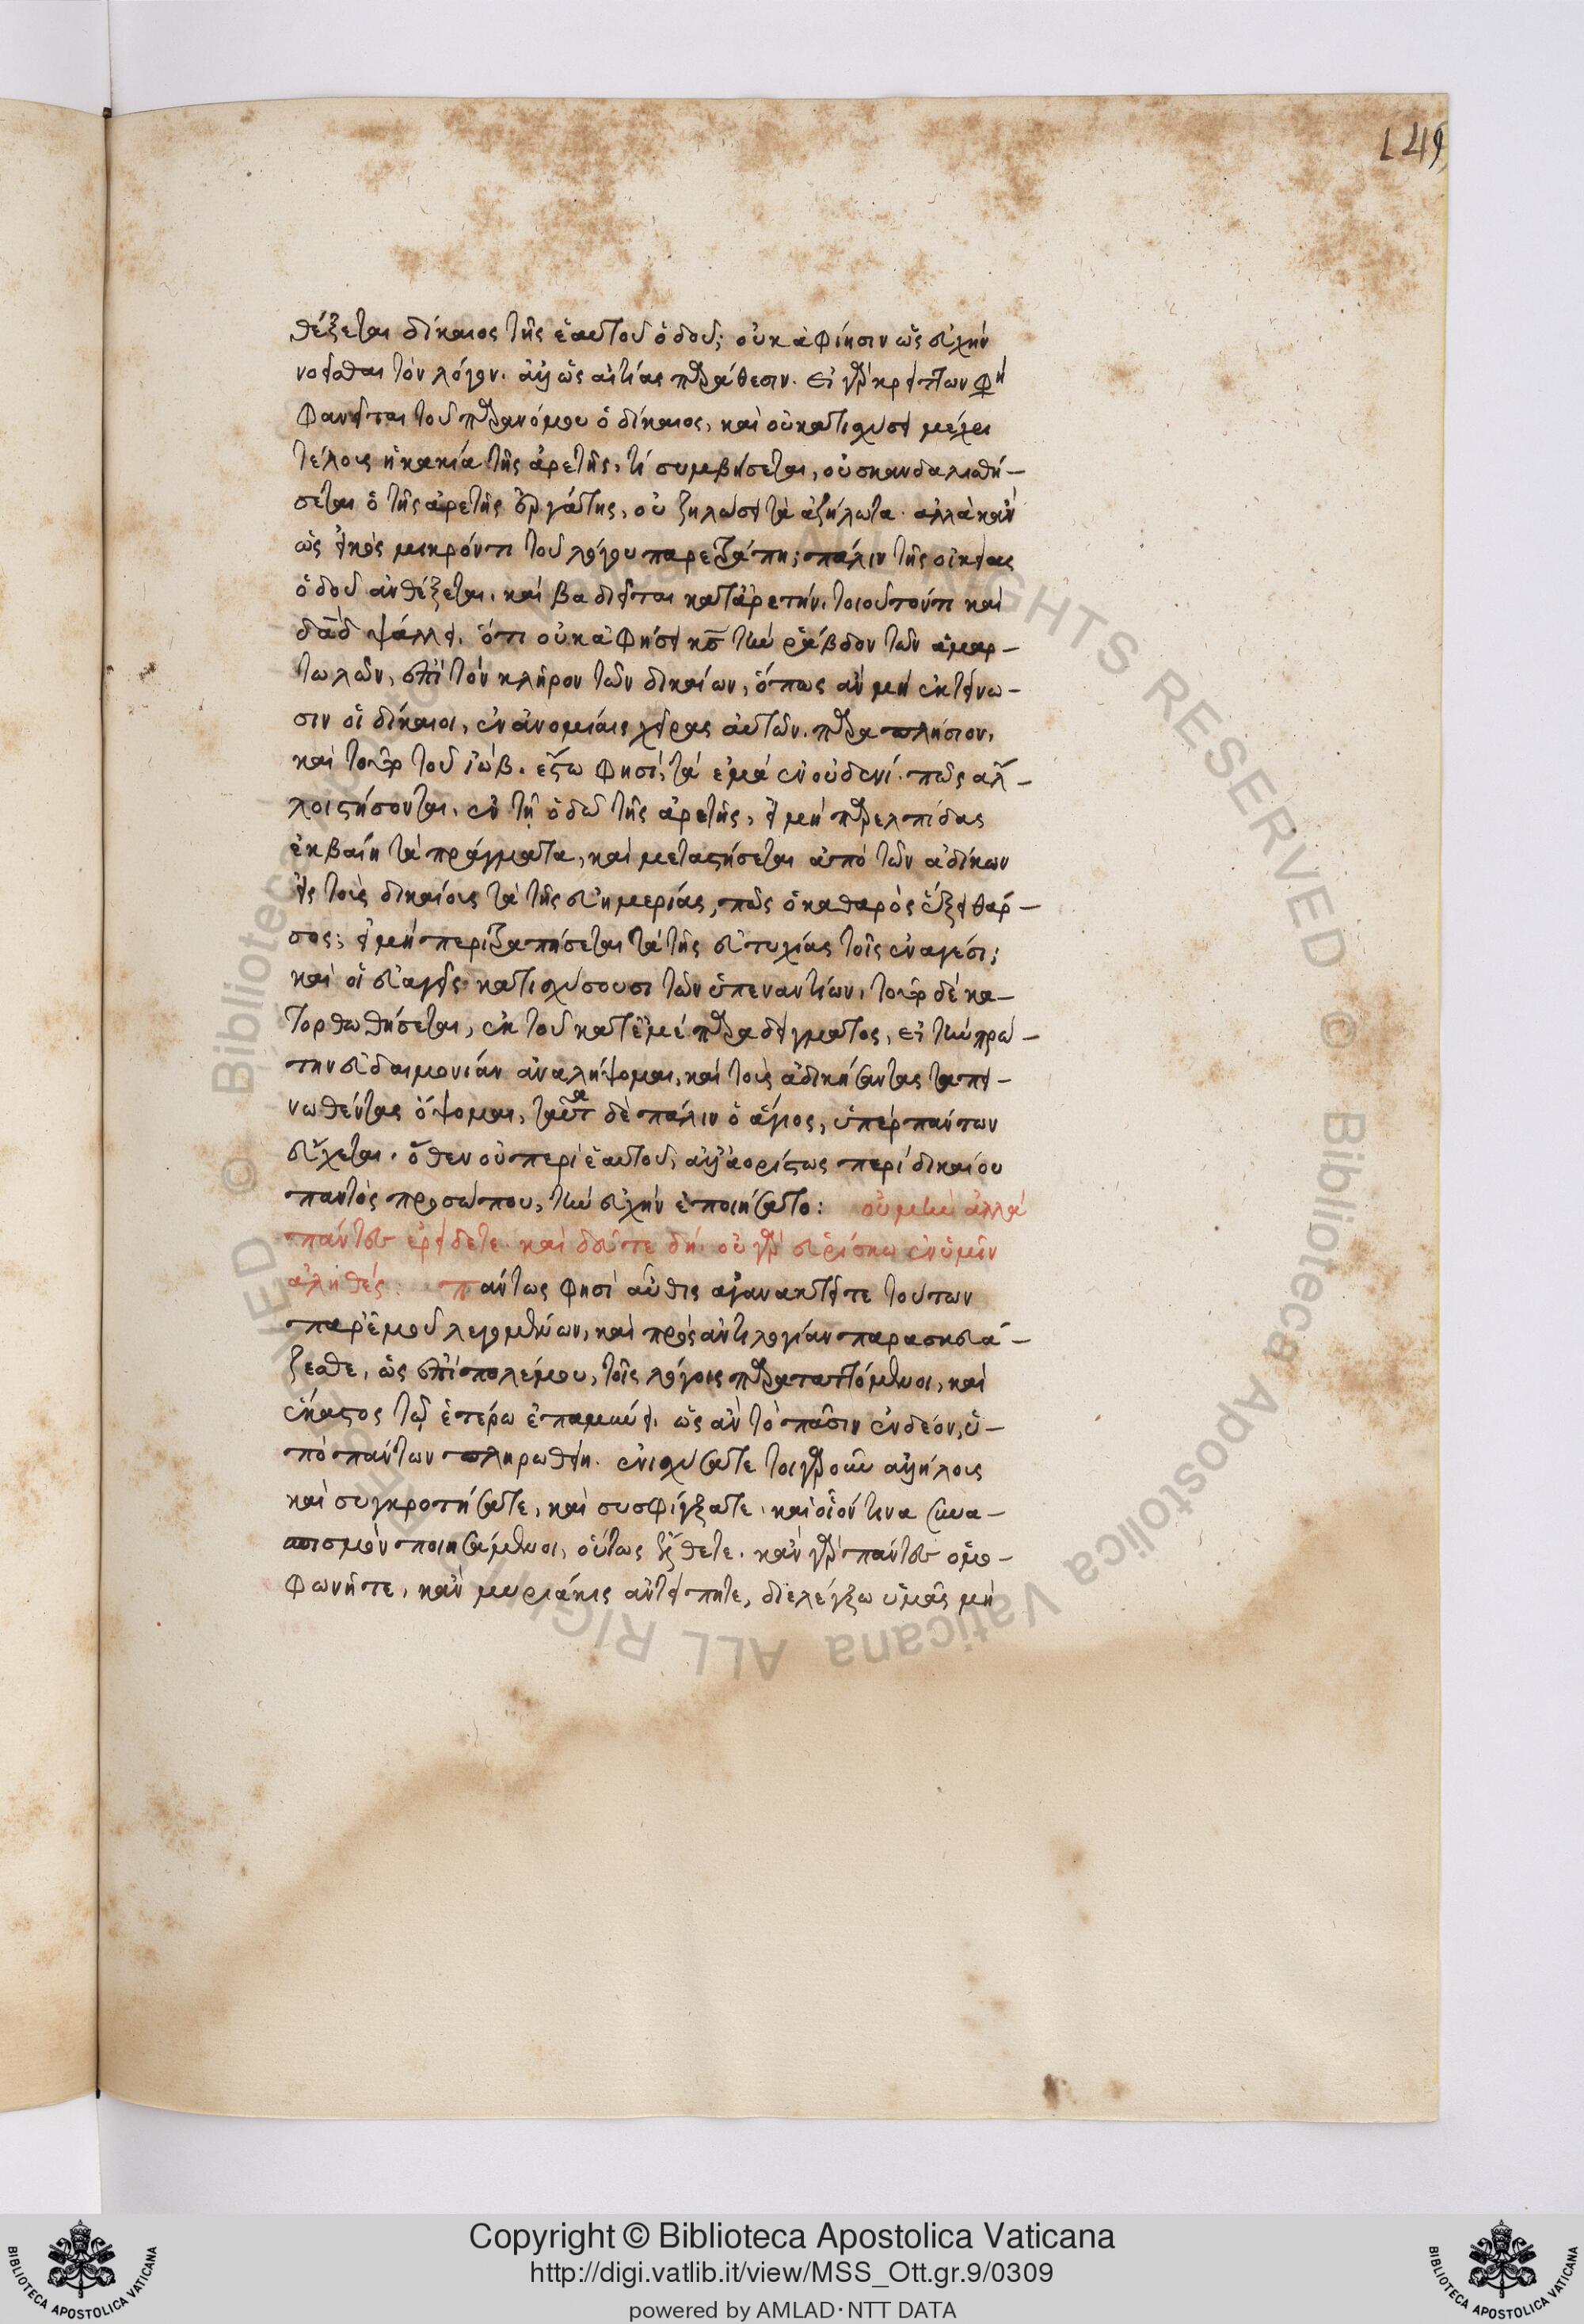 149
θέξεται δίκαιος τῆς ἑαυτοῦ ὁδοῦ; οὐκ ἀφίησιν ὡς εὐχὴν
νοεῖσθαι τὸν λόγον. ἀλλ' ὡς αἰτίας παράθεσιν. εἰ γὰρ κρείττων φη
φανεῖται τοῦ παρανόμου ὁ δίκαιος, καὶ οὐ κατισχύσει μέχρι
τέλους ἡ κακία τῆς ἀρετῆς, τί συμβήσεται, οὐ σκανδαλισθή-
σεται ὁ τῆς ἀρετῆς ἐργάτης, οὐ ζηλώσει τὰ ἀζήλωτα. ἀλλὰ κἂν
ὡς εἰκός μικρόν τι τοῦ λόγου παρετράπη; πάλιν τῆς οἰκείας
ὁδοῦ ἀνθέξεται. καὶ βαδιεῖται κατ' ἀρετήν. τοιοῦτόν τι καὶ
δαδ ψάλλει. ὅτι οὐκ ἀφήσει κς τὴν ῥάβδον τῶν ἁμαρ-
τωλῶν, ἐπὶ τὸν κλῆρον τῶν δικαίων, ὅπως ἂν μὴ ἐκτείνω-
σιν οἱ δίκαιοι, ἐν ἀνομίαις χεῖρας αὐτῶν. παραπλήσιον,
καὶ τοῦ ἰώβ. ἔξω φησί, τὰ ἐμὰ ἐν οὐδενί. πῶς ἀλ-
λοι στήσονται. ἐν τῇ ὁδῷ τῆς ἀρετῆς, εἰ μὴ παρ' ἐλπίδας
ἐκβαίη τὰ πράγματα, καὶ μεταστήσεται ἀπὸ τῶν ἀδίκων
εἰς τοὺς δικαίους τὰ τῆς εὐημερίας, πῶς ὁ καθαρὸς ἕξει θάρ-
σος; εἰ μὴ περιτραπήσεται τὰ τῆς εὐτυχίας τοῖς ἐναγέσι;
καὶ οἱ εὐαγεῖς κατισχύσουσι τῶν ὑπεναντίων, δὲ κα-
τορθωθήσεται, ἐκ τοῦ κατ' ἐμὲ παραδείγματος, εἰ τὴν πρώ-
την εὐδαιμονίαν ἀναλήψομαι, καὶ τοὺς ἀδικήσαντας ταπει-
νωθέντας ὄψομαι, ταῦτα δὲ πάλιν ὁ ἅγιος, ὑπὲρ πάντων
εὔχεται. ὅθεν οὐ περὶ ἑαυτοῦ, ἀλλ' ἀορίστως περὶ δικαίου
παντὸς προσώπου, τὴν εὐχὴν ἐποιήσατο: οὐ μὴν ἀλλὰ
πάντες ἐρείδετε καὶ δεῦτε δή. οὐ γὰρ εὑρίσκω ἐν ὑμῖν
ἀληθές: πάντως φησὶ αὖθις ἀγανακτεῖτε τούτων
παρ' ἐμοῦ λεγομένων, καὶ πρὸς ἀντιλογίαν παρασκευά-
ζεσθε, ὡς ἐπὶ πολέμου, τοῖς λόγοις παραταττόμενοι, καὶ
ἕκαστος τῷ ἑτέρῳ ἐπαμύνει. ὡς ἂν τὸ πᾶσιν ἐνδέον, ὑ-
πὸ πάντων πληρωθείη. ἐνισχύσατε τοιγαροῦν ἀλλήλους
καὶ συγκροτήσατε, καὶ συσφίγξατε. καὶ οἷόν τινα συνα-
σπισμὸν ποιησάμενοι, οὕτως ἔλθετε. κἂν γὰρ πάντες ὁμο-
φωνῆτε, κἂν μυριάκις ἀντείπητε, διελέγξω ὑμᾶς μὴ
© Biblioteca Apostolica Vaticana ALL RIGHTS RESERVED
Copyright © Biblioteca Apostolica Vaticana
http://digi.vatlib.it/view/MSS_Ott.gr.9/0309
powered by AMLAD·NTT DATA
BIBLIOTECA APOSTOLICA VATICANA
BIBLIOTECA APOSTOLICA VATICANA